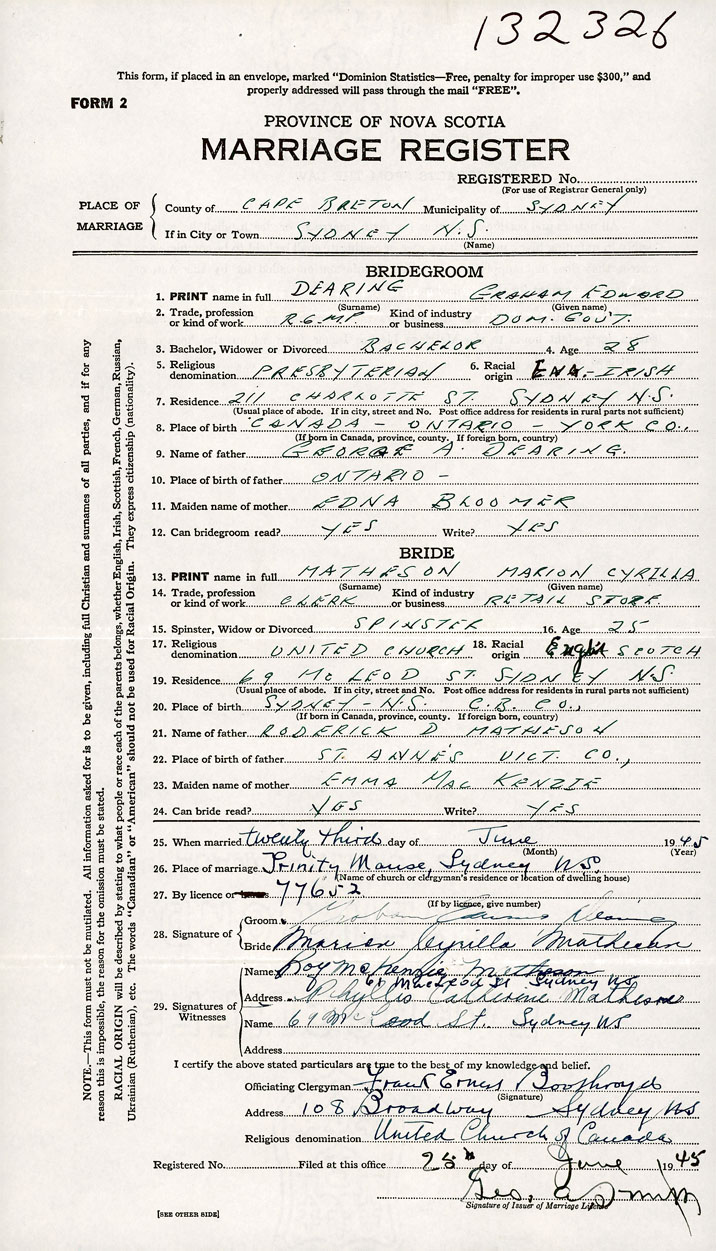 132326
This form, if placed in an envelope, marked "Dominion Statistics—Free, penalty for improper use $300," and
properly addressed will pass through the mail "FREE".
FORM 2
PROVINCE OF NOVA SCOTIA
MARRIAGE REGISTER
REGISTERED No.
(For use of Registrar General only)
PLACE OF MARRIAGE
County of CAPE BRETON Municipality of SYDNEY
If in City or Town SYDNEY N.S.
(Name)
BRIDEGROOM
1. PRINT name in full DEARING GRAHAM EDWARD
(Surname) (Given name)
2. Trade, profession or kind of work R.C.M.P. Kind of industry or business DOM. GOV'T.
3. Bachelor, Widower or Divorced BACHELOR 4. Age 28
5. Religious denomination PRESBYTERIAN 6. Racial origin IRISH
7. Residence 211 CHARLOTTE ST. SYDNEY N.S.
(Usual place of abode. If in city, street and No. Post office address for residents in rural parts not sufficient)
8. Place of birth CANADA - ONTARIO - YORK CO.,
(If born in Canada, province, county. If foreign born, country)
9. Name of father GEORGE A. DEARING.
10. Place of birth of father ONTARIO -
11. Maiden name of mother EDNA BLOOMER
12. Can bridegroom read? YES Write? YES
BRIDE
13. PRINT name in full MATHESON MARION CYRILLA
(Surname) (Given name)
14. Trade, profession or kind of work CLERK Kind of industry or business RETAIL STORE.
15. Spinster, Widow or Divorced SPINSTER 16. Age 25
17. Religious denomination UNITED CHURCH 18. Racial origin SCOTCH
19. Residence 69 McLEOD ST. SYDNEY N.S.
(Usual place of abode. If in city, street and No. Post office address for residents in rural parts not sufficient)
20. Place of birth SYDNEY - N.S. C.B. CO.,
(If born in Canada, province, county. If foreign born, country)
21. Name of father RODERICK D MATHESON
22. Place of birth of father ST. ANNE'S VICT. CO.,
23. Maiden name of mother EMMA MAC KENZIE
24. Can bride read? YES Write? YES
25. When married twenty third day of June 1945
(Month) (Year)
26. Place of marriage Trinity Manse, Sydney NS.
(Name of church or clergyman's residence or location of dwelling house)
27. By licence or 77652
(If by licence, give number)
28. Signature of
Groom Graham Dearing
Bride Marion Cyrilla Matheson
29. Signatures of Witnesses
Name Roy McKenzie Matheson
69 MacLeod St Sydney NS
Address Phyllis Catherine Matheson
Name 69 McLeod St. Sydney NS
Address
I certify the above stated particulars are true to the best of my knowledge and belief.
Officiating Clergyman Frank Ernest Boothroyd
(Signature)
Address 108 Broadway Sydney NS
Religious denomination United Church of Canada
Registered No. Filed at this office 28th day of June 1945
Geo. A Smith
Signature of Issuer of Marriage License
[SEE OTHER SIDE]
NOTE.—This form must not be mutilated. All information asked for is to be given, including full Christian and surnames of all parties, and if for any
reason this is impossible, the reason for the omission must be stated.
RACIAL ORIGIN will be described by stating to what people or race each of the parents belongs, whether English, Irish, Scottish, French, German, Russian,
Ukrainian (Ruthenian), etc. The words "Canadian" or "American" should not be used for Racial Origin. They express citizenship (nationality).